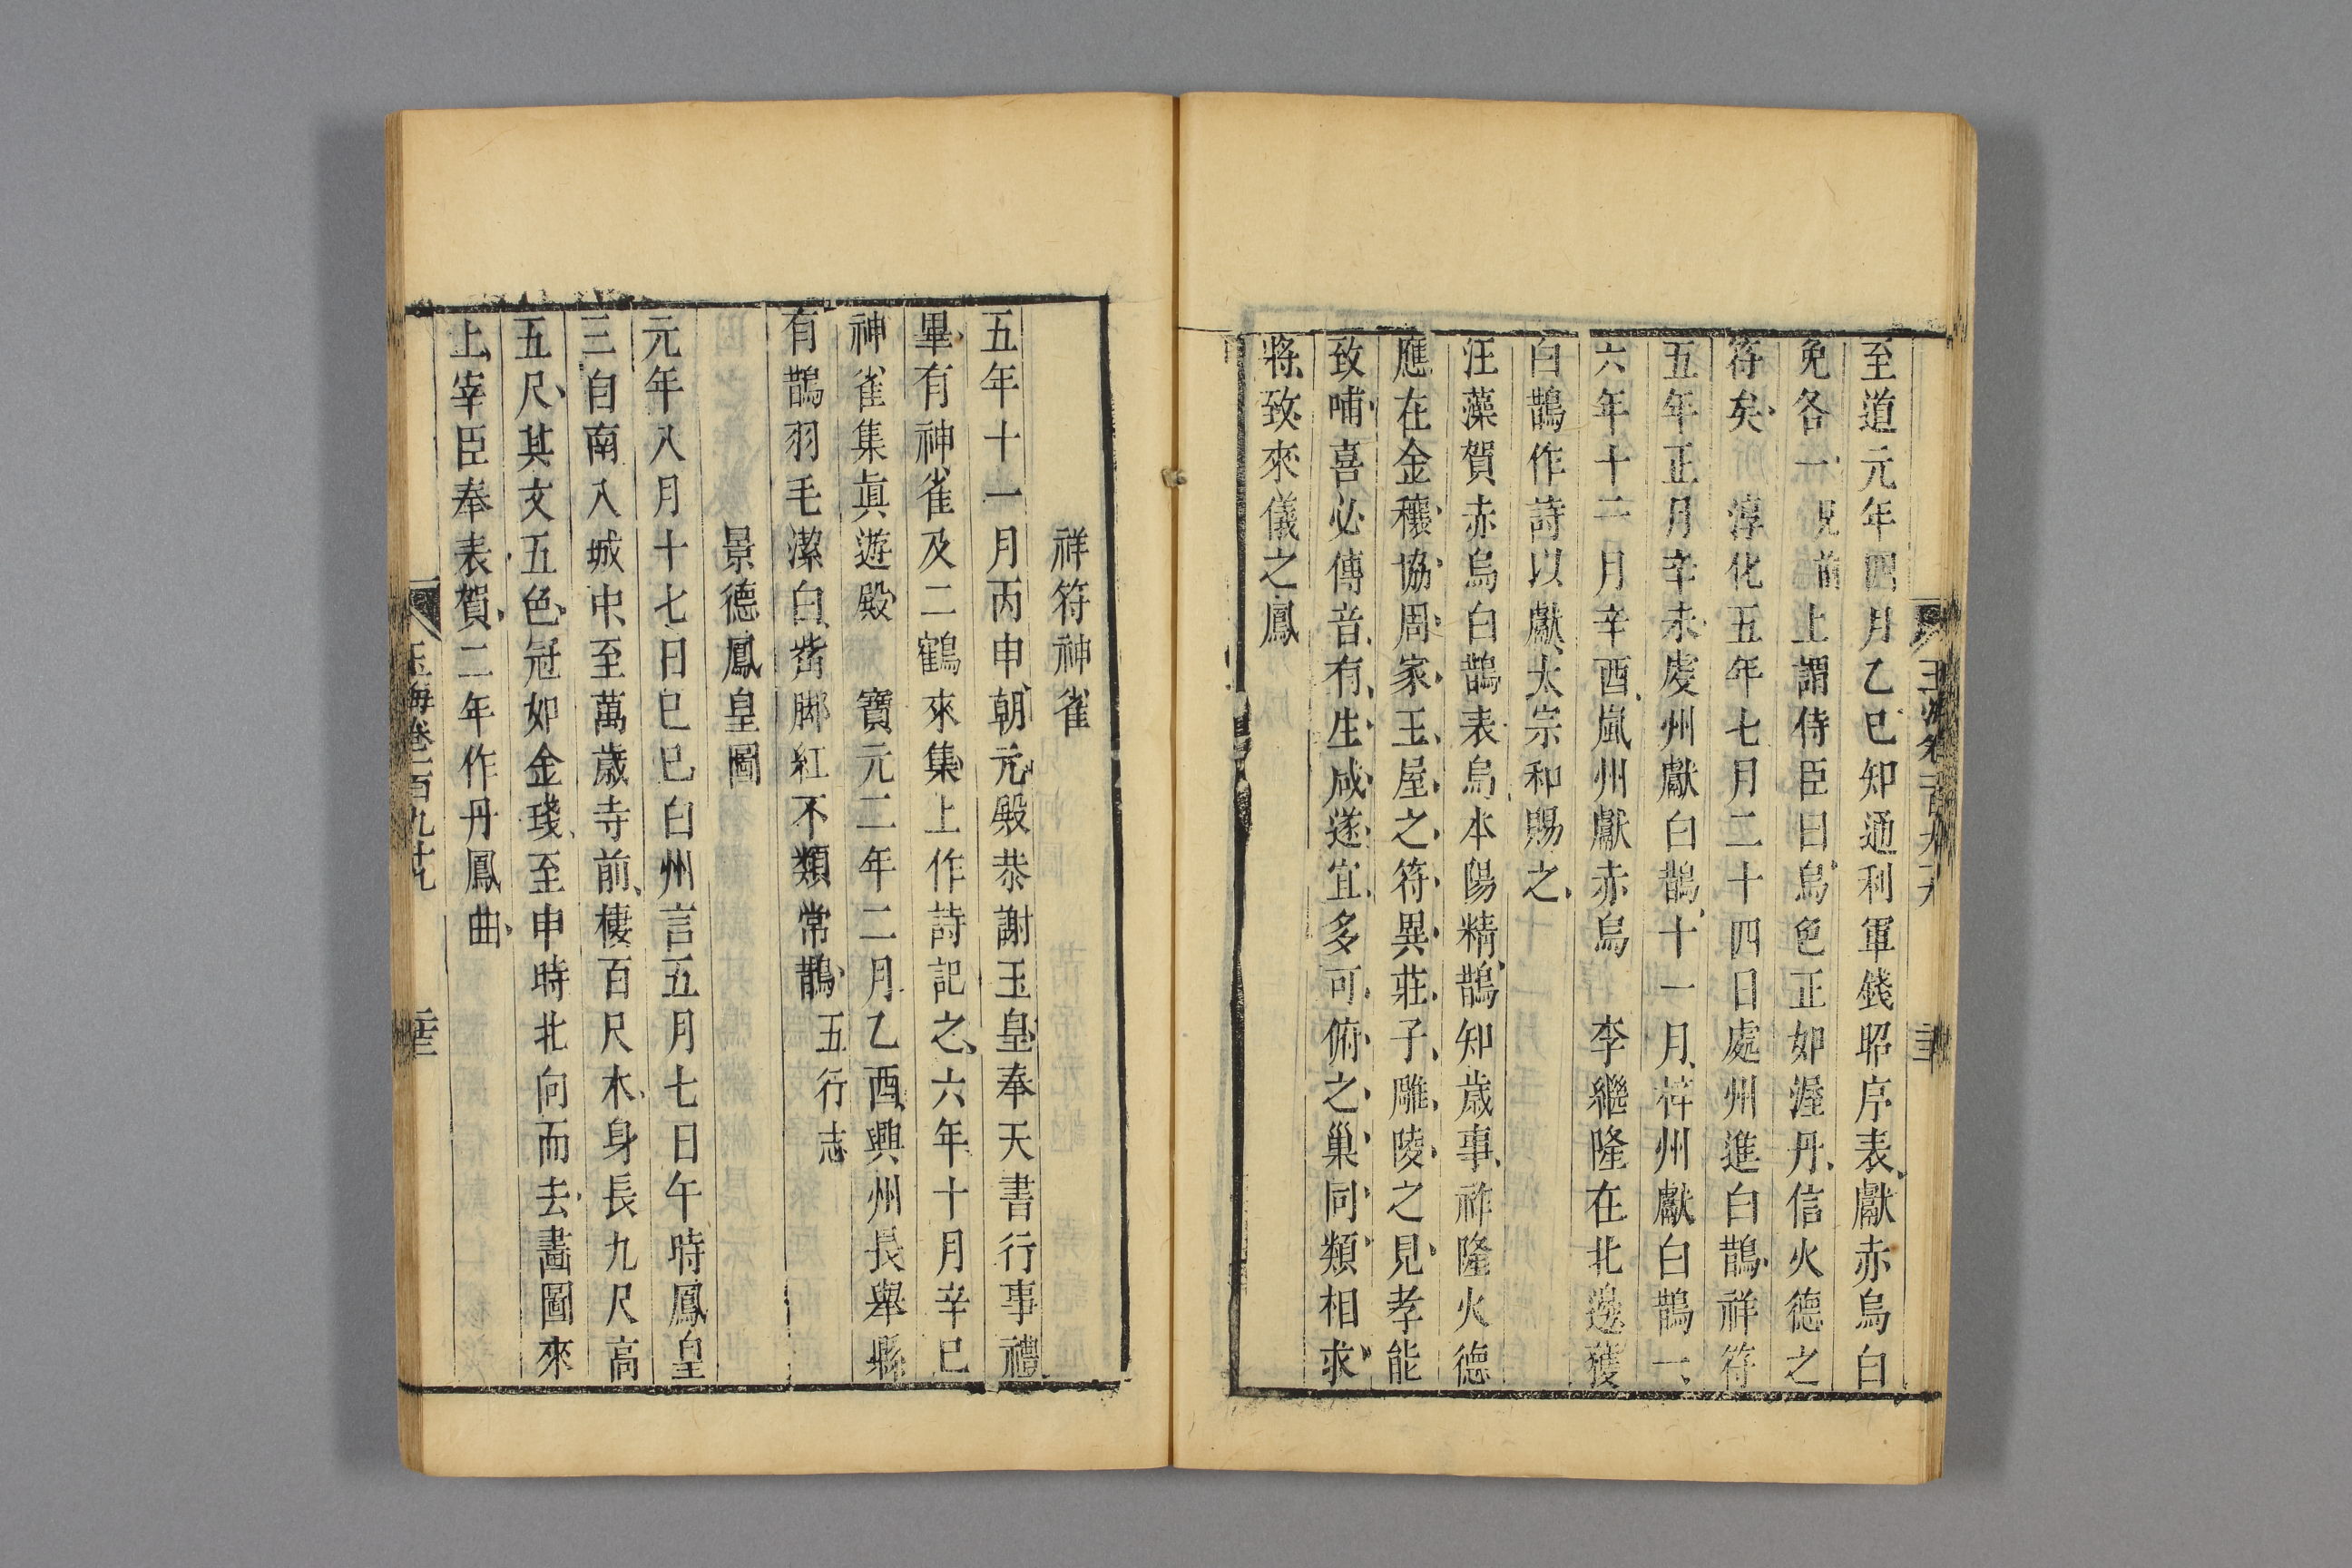 至道元年四月乙巳知通利軍錢昭序表獻赤烏白
兔各一見前上謂侍臣曰烏色正如渥丹信火德之
符矣淳化五年七月二十四日處州進白鵲祥符
五年正月辛未虔州獻白鵲十一月梓州獻白鵲一
六年十二月辛酉嵐州獻赤烏李繼隆在北邊獲
白鵲作詩以獻太宗和賜之
汪藻賀赤烏白鵲表烏本陽精鵲知歲事祚隆火德
應在金穰協周家王屋之符異莊子雕陵之見孝能
致哺喜必傳音有生咸遂宜多可俯之巢同類相求
將致來儀之鳳
祥符神雀
五年十一月丙申朝元殿恭謝玉皇奉天書行事禮
畢有神雀及二鶴來集上作詩記之六年十月辛巳
神雀集真遊殿寶元二年二月乙酉興州長舉縣
有鵲羽毛潔白觜脚紅不類常鵲五行志
景德鳳皇圖
元年八月十七日己巳白州言五月七日午時鳳皇
三自南入城中至萬歲寺前棲百尺木身長九尺高
五尺其文五色冠如金琖至申時北向而去畫圖來
上宰臣奉表賀二年作丹鳳曲
玉海卷一百九十九